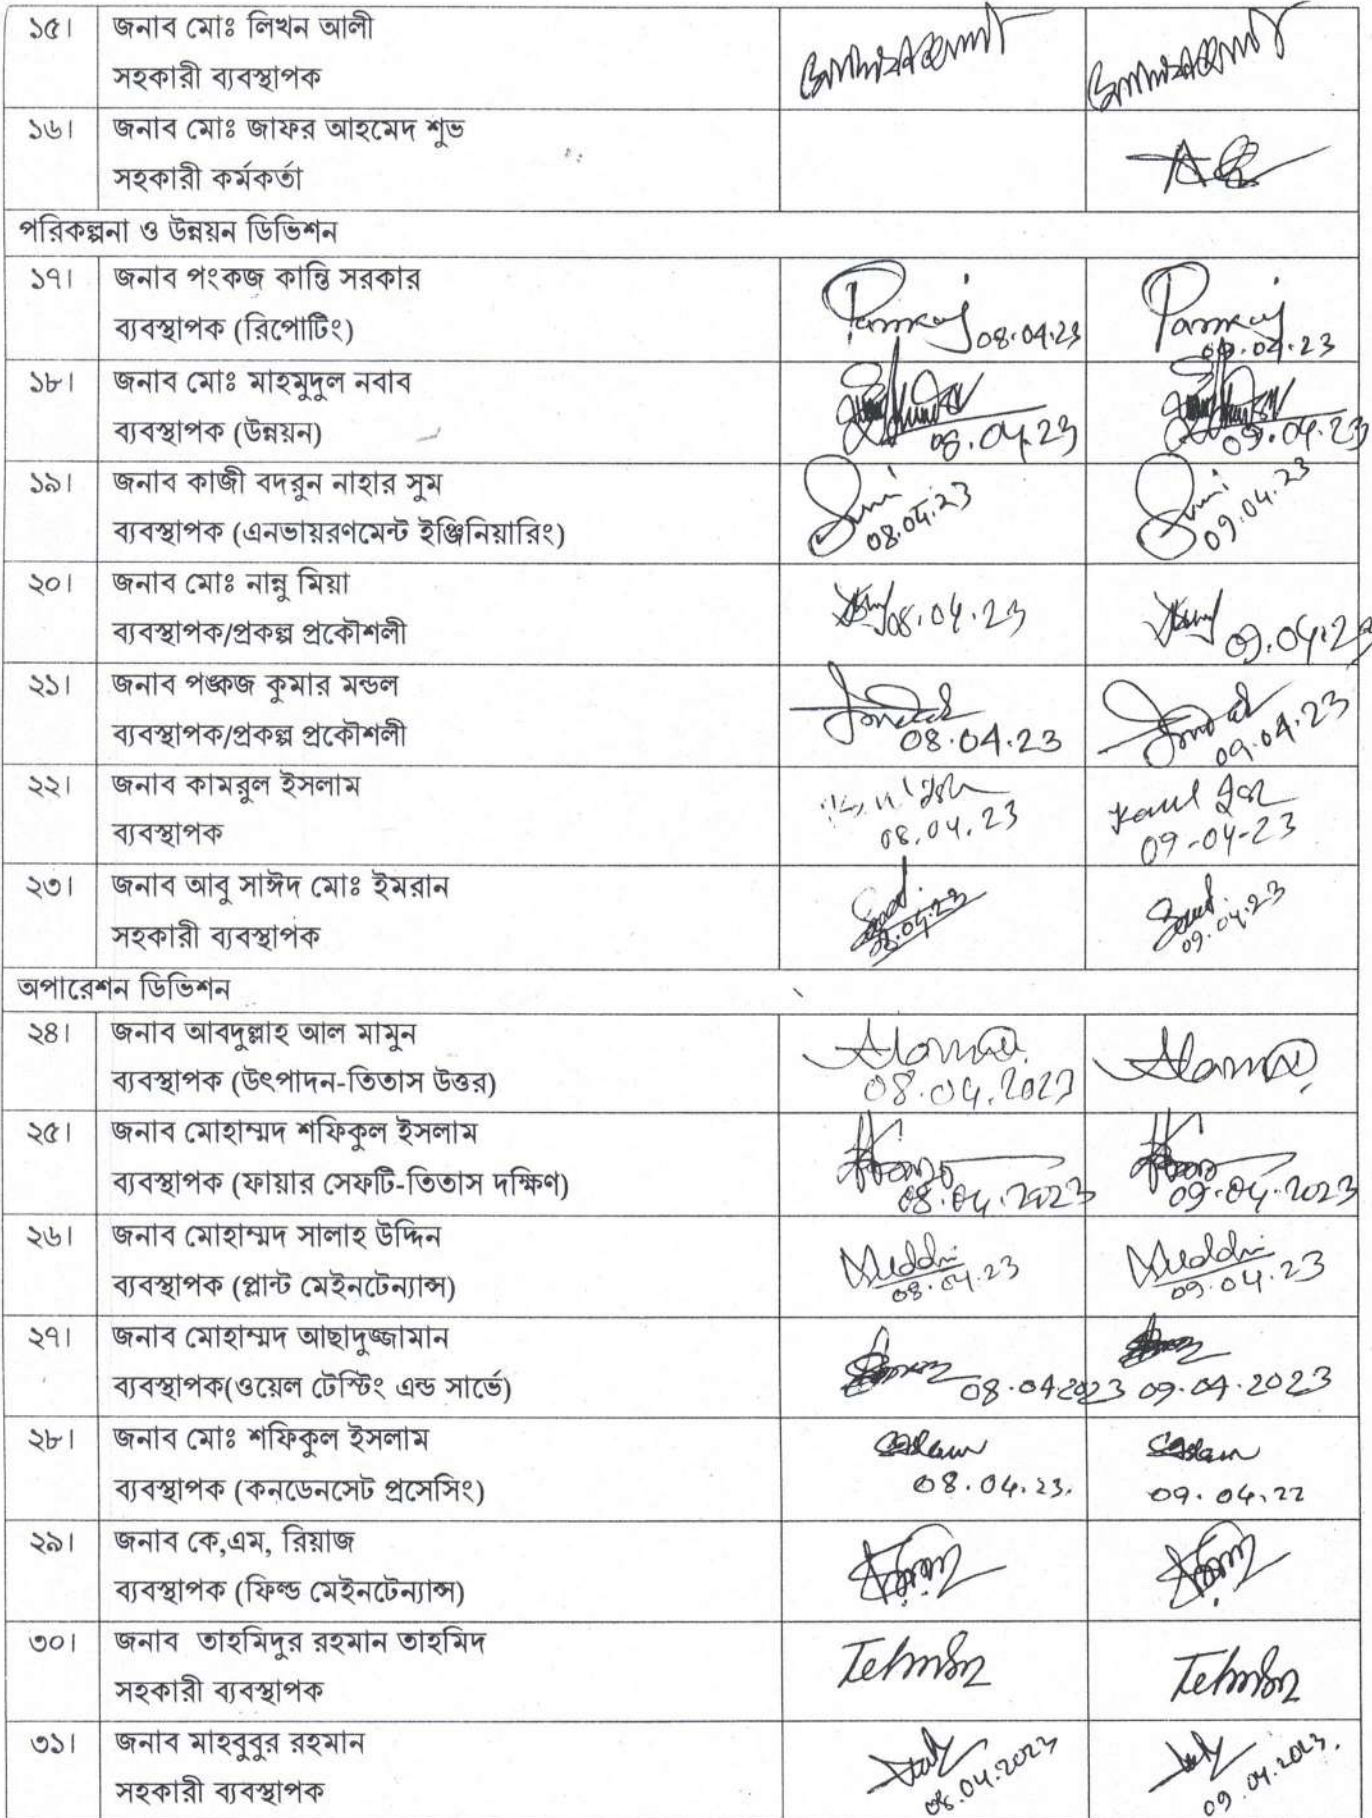 ১৫। জনাব মোঃ লিখন আলী
সহকারী ব্যবস্থাপক
১৬। জনাব মোঃ জাফর আহমেদ শুভ
সহকারী কর্মকর্তা
পরিকল্পনা ও উন্নয়ন ডিভিশন
১৭। জনাব পংকজ কান্তি সরকার
ব্যবস্থাপক (রিপোটিং) 08.04.23 09.04.23
১৮। জনাব মোঃ মাহমুদুল নবাব
ব্যবস্থাপক (উন্নয়ন) 08.04.23 09.04.23
১৯। জনাব কাজী বদরুন নাহার সুম
ব্যবস্থাপক (এনভায়রণমেন্ট ইঞ্জিনিয়ারিং) 08.04.23 09.04.23
২০। জনাব মোঃ নান্নু মিয়া
ব্যবস্থাপক/প্রকল্প প্রকৌশলী 08.04.23 09.04.23
২১। জনাব পঙ্কজ কুমার মন্ডল
ব্যবস্থাপক/প্রকল্প প্রকৌশলী 08.04.23 09.04.23
২২। জনাব কামরুল ইসলাম
ব্যবস্থাপক 08.04.23 09-04-23
২৩। জনাব আবু সাঈদ মোঃ ইমরান
সহকারী ব্যবস্থাপক 08.04.23 09.04.23
অপারেশন ডিভিশন
২৪। জনাব আবদুল্লাহ আল মামুন
ব্যবস্থাপক (উৎপাদন-তিতাস উত্তর) 08.04.2023
২৫। জনাব মোহাম্মদ শফিকুল ইসলাম
ব্যবস্থাপক (ফায়ার সেফটি-তিতাস দক্ষিণ) 08.04.2023 09.04.2023
২৬। জনাব মোহাম্মদ সালাহ উদ্দিন
ব্যবস্থাপক (প্লান্ট মেইনটেন্যান্স) 08.04.23 09.04.23
২৭। জনাব মোহাম্মদ আছাদুজ্জামান
ব্যবস্থাপক(ওয়েল টেস্টিং এন্ড সার্ভে) 08.042023 09.04.2023
২৮। জনাব মোঃ শফিকুল ইসলাম
ব্যবস্থাপক (কনডেনসেট প্রসেসিং) 08.04.23. 09.04.22
২৯। জনাব কে,এম, রিয়াজ
ব্যবস্থাপক (ফিল্ড মেইনটেন্যান্স)
৩০। জনাব তাহমিদুর রহমান তাহমিদ
সহকারী ব্যবস্থাপক
৩১। জনাব মাহবুবুর রহমান
সহকারী ব্যবস্থাপক 08.04.2023 09.04.2023.